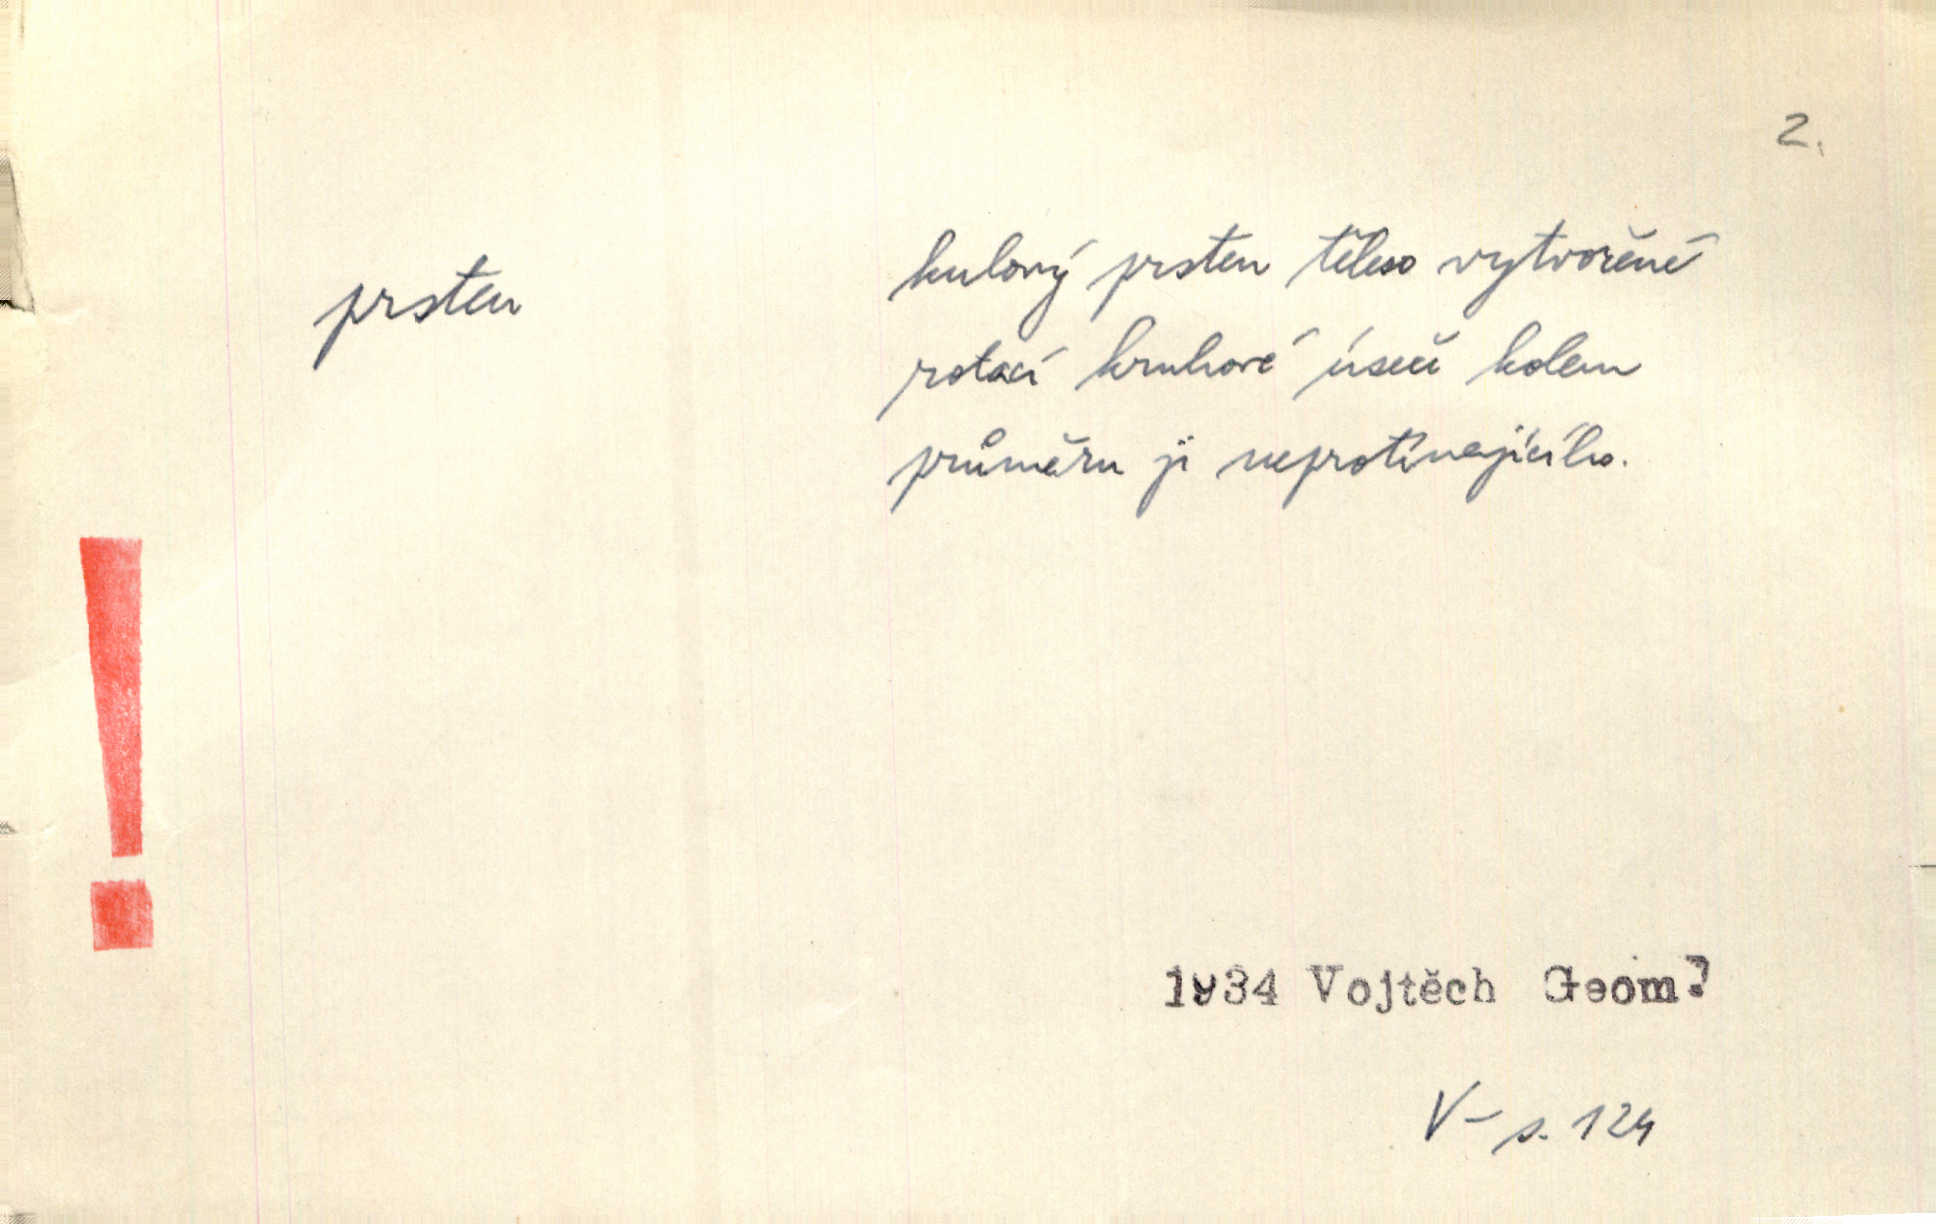 2.
prsten
kulový prsten těleso vytvořené
rotací kruhové úseče kolem
průměru ji neprotínajícího.
!
1934 Vojtěch Geom?
V- s. 124